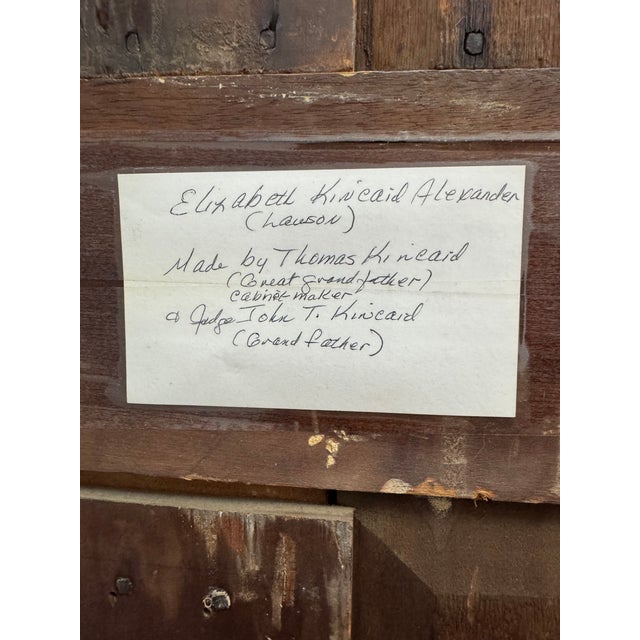 Elizabeth Kincaid Alexander
(Lawson)
Made by Thomas Kincaid
(Great grandfather)
cabinet maker
Judge John T. Kincaid
(Grandfather)